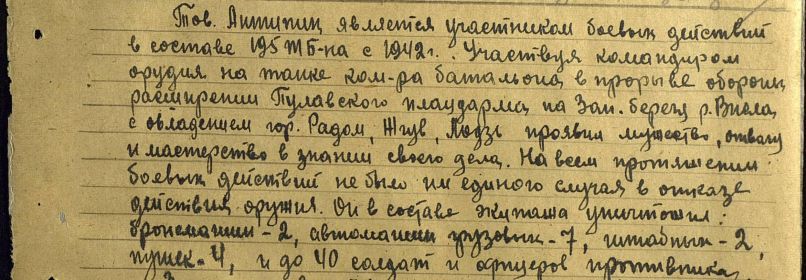 Тов. Антипин является участником боевых действий
в составе 195 ТБ-на с 1942 г. Участвуя командиром
орудия на танке ком-ра батальона в прорыве обороны
расширении Пулавского плацдарма на Зап. берегу р. Висла
с овладением гор. Радом, Згув, Лодзь проявил мужество, отвагу
и мастерство в знании своего дела. На всем протяжении
боевых действий не было ни единого случая в отказе
действия оружия. Он в составе экипажа уничтожил:
бронемашин - 2, автомашин грузовых - 7, штабных - 2
пушек - 4, и до 40 солдат и офицеров противника,